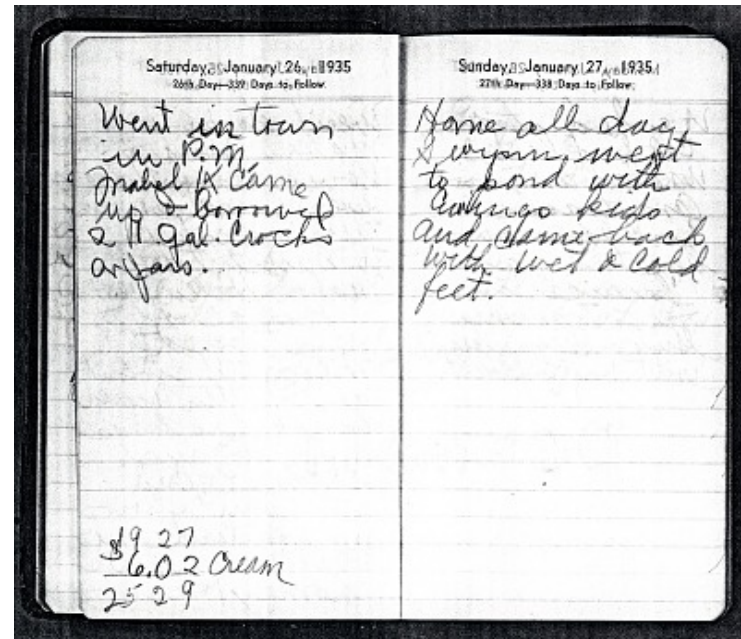 Saturday, January 26, 1935
26th Day—339 Days to Follow
Went in town
in P.M.
Mabel K came
up & borrowed
2 11 gal. Crocks
or Jars.
19 27
$6.02 Cream
25 29
Sunday, January 27, 1935
27th Day—338 Days to Follow
Home all day
& wynn went
to pond with
kids
and came back
with wet & cold
feet.